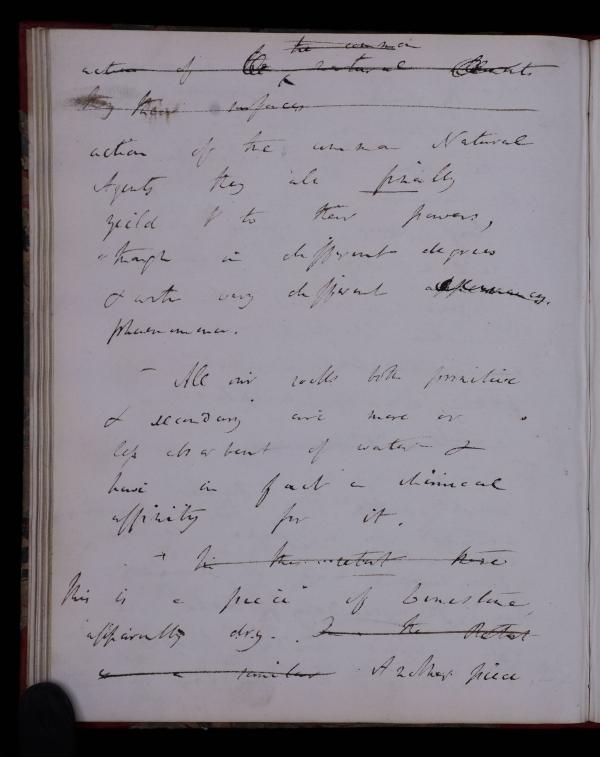 the common
action of the natural
they their surfaces
action of the common Natural
Agents they all finally
yield to their powers,
though in different degrees
& with very different appearances.
phaenomena.
– All our rocks both primitive
& secondary are more or
less absorbent of water &
have in fact a chemical
affinity for it.
In this retort here
This is a piece of limestone,
apparently dry. In the Retort
is a similar Another piece